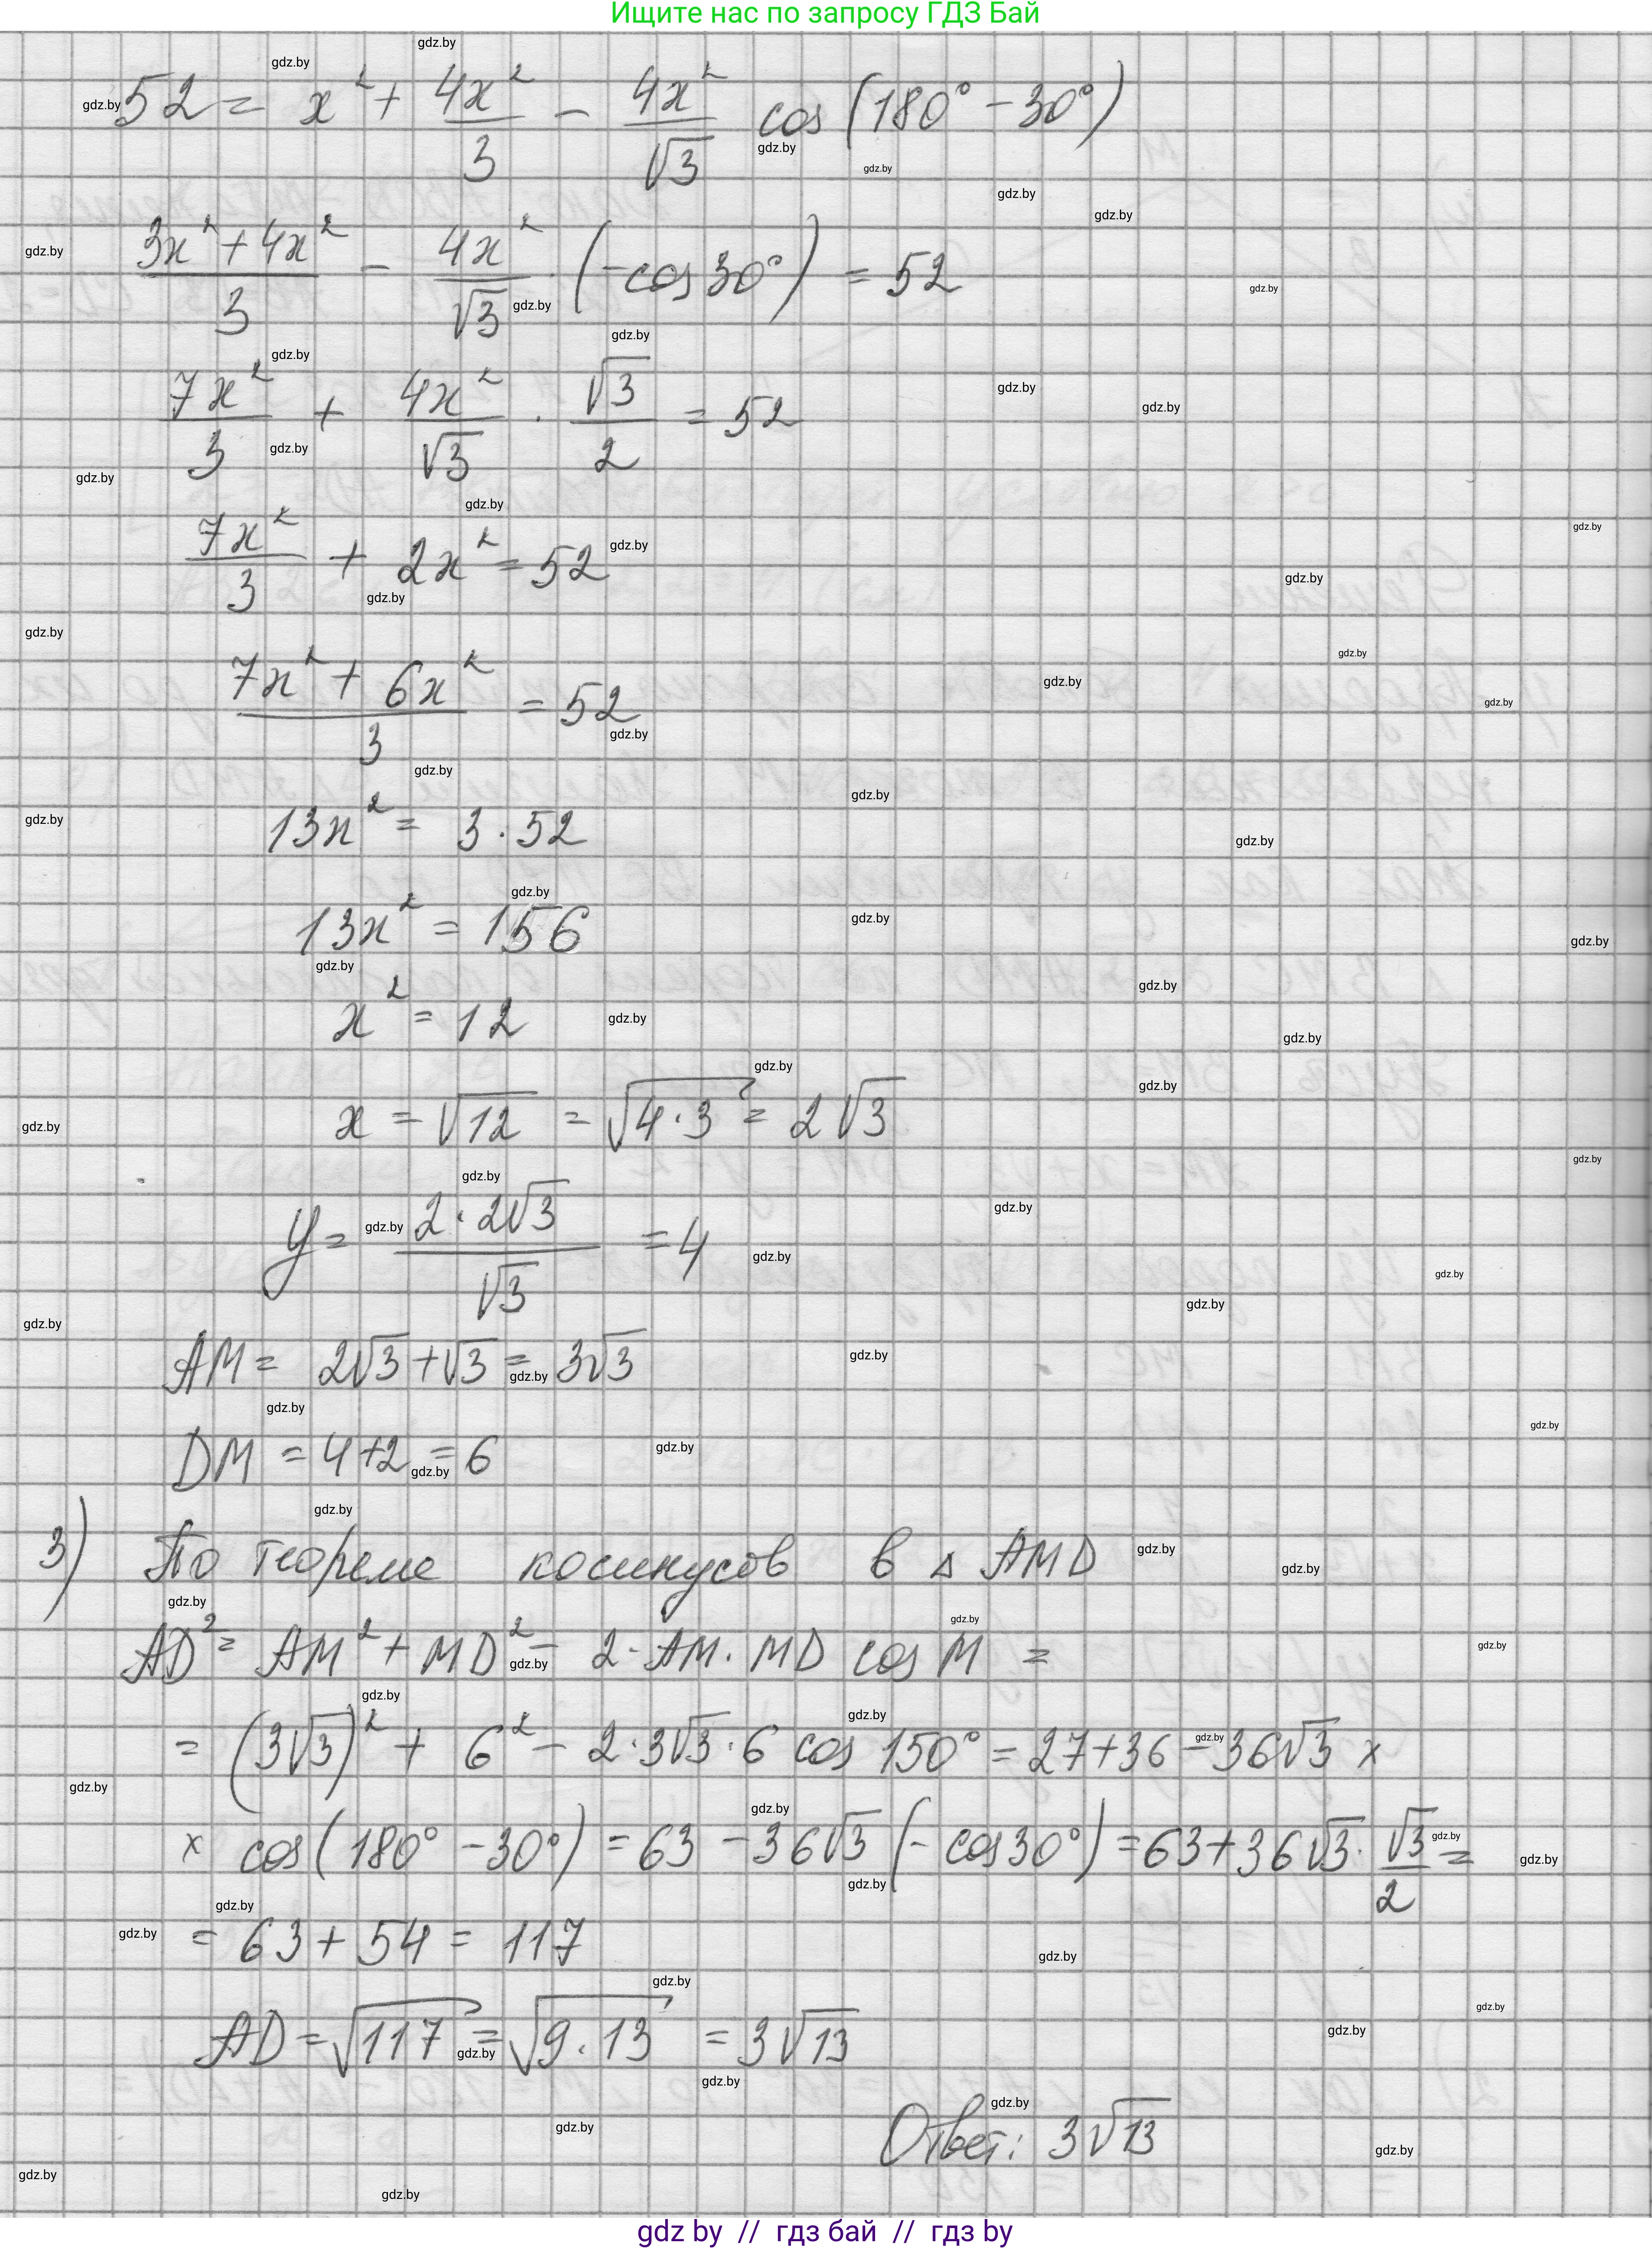 Ищите нас по запросу ГДЗ Бай
52 = x² + 4x²/3 − 4x²/√3 cos(180° − 30°)
(3x² + 4x²)/3 − 4x²/√3 · (−cos 30°) = 52
7x²/3 + 4x²/√3 · √3/2 = 52
7x²/3 + 2x² = 52
(7x² + 6x²)/3 = 52
13x² = 3 · 52
13x² = 156
x² = 12
x = √12 = √(4·3) = 2√3
y = (2·2√3)/√3 = 4
AM = 2√3 + √3 = 3√3
DM = 4 + 2 = 6
3) По теореме косинусов в △ AMD
AD² = AM² + MD² − 2·AM·MD cos M =
= (3√3)² + 6² − 2·3√3·6 cos 150° = 27 + 36 − 36√3 ×
× cos(180° − 30°) = 63 − 36√3 (−cos 30°) = 63 + 36√3 · √3/2 =
= 63 + 54 = 117
AD = √117 = √(9·13) = 3√13
Ответ: 3√13
gdz by // гдз бай // гдз by